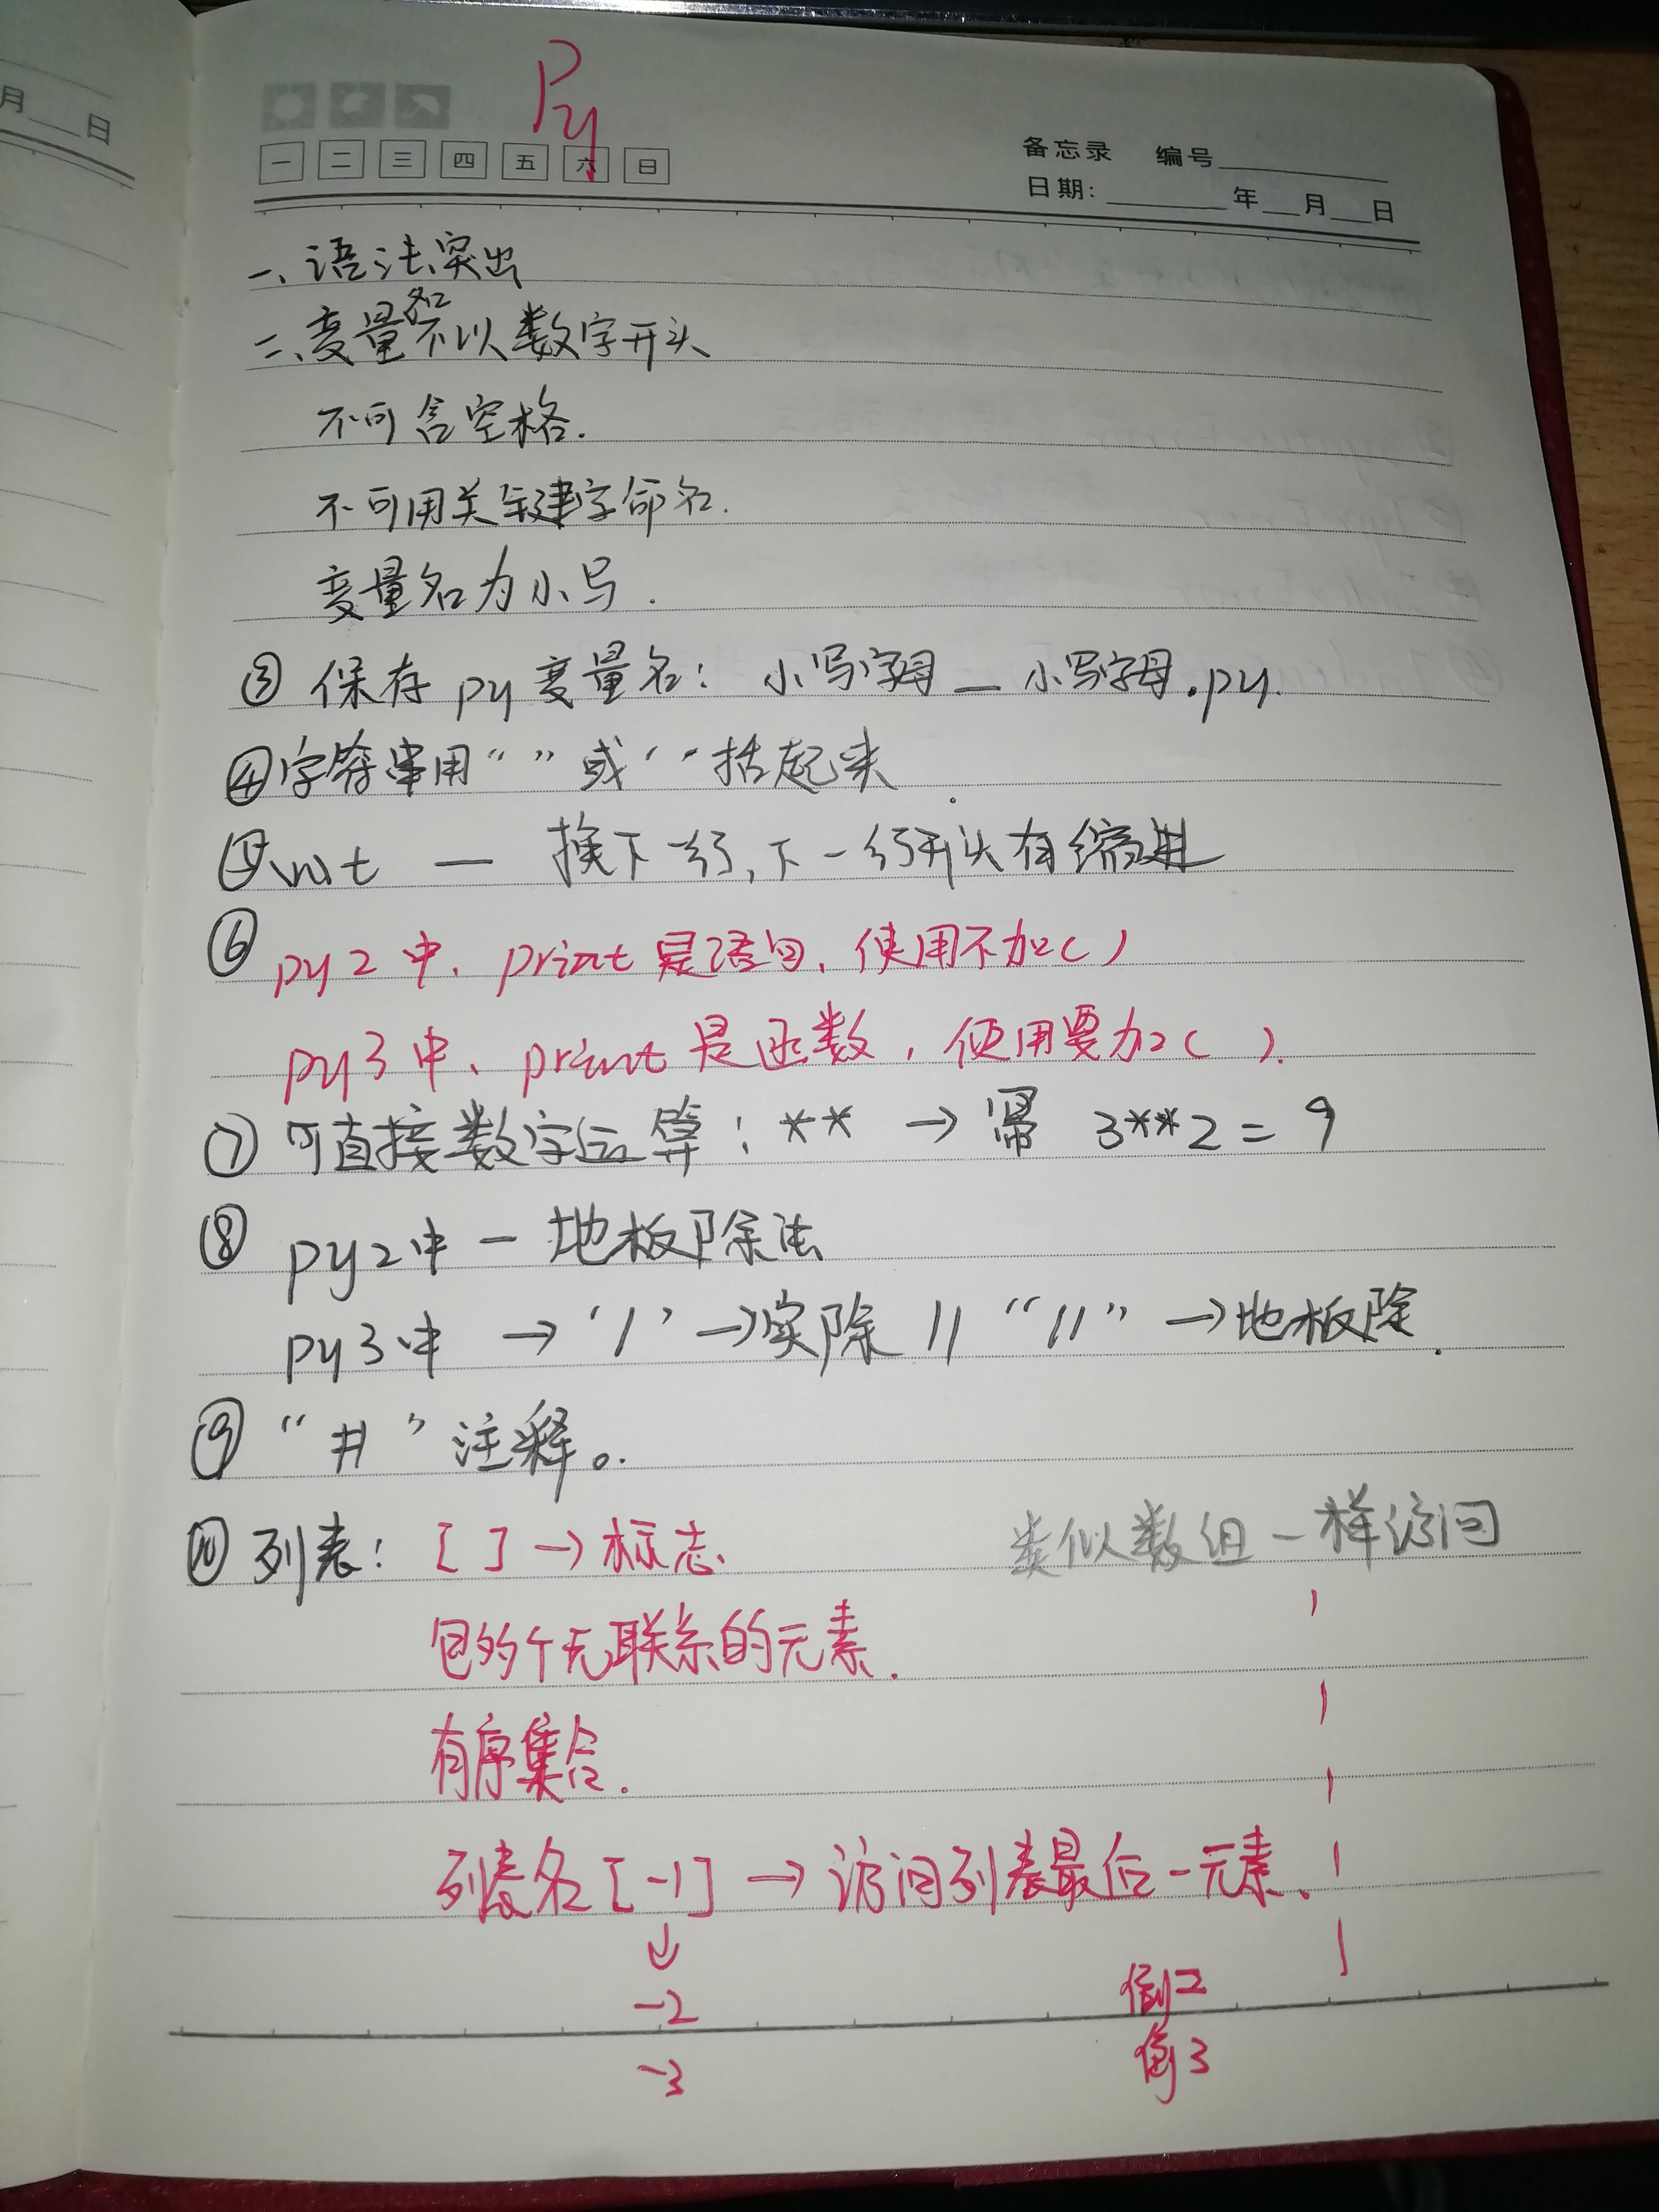 月 日
Py
一 二 三 四 五 六 日
备忘录 编号
日期: 年 月 日
一、语法突出
二、变量名不以数字开头
不可含空格.
不可用关键字命名.
变量名为小写.
③ 保存py变量名: 小写字母_小写字母.py.
④字符串用“ ”或‘ ’括起来
⑤\n\t — 换下一行,下一行开头有缩进
⑥ py2中、print是语句,使用不加()
py3中、print是函数,使用要加( ).
⑦ 可直接数字运算: ** → 幂 3**2=9
⑧ py2中 — 地板除法
py3中 → ‘/’→实除 // “//”→地板除.
⑨ “#”注释。
⑩ 列表: [ ]→标志、 类似数组一样访问
包多个无联系的元素.
有序集合.
列表名[-1] → 访问列表最后一元素、
↓
-2 倒2
-3 倒3